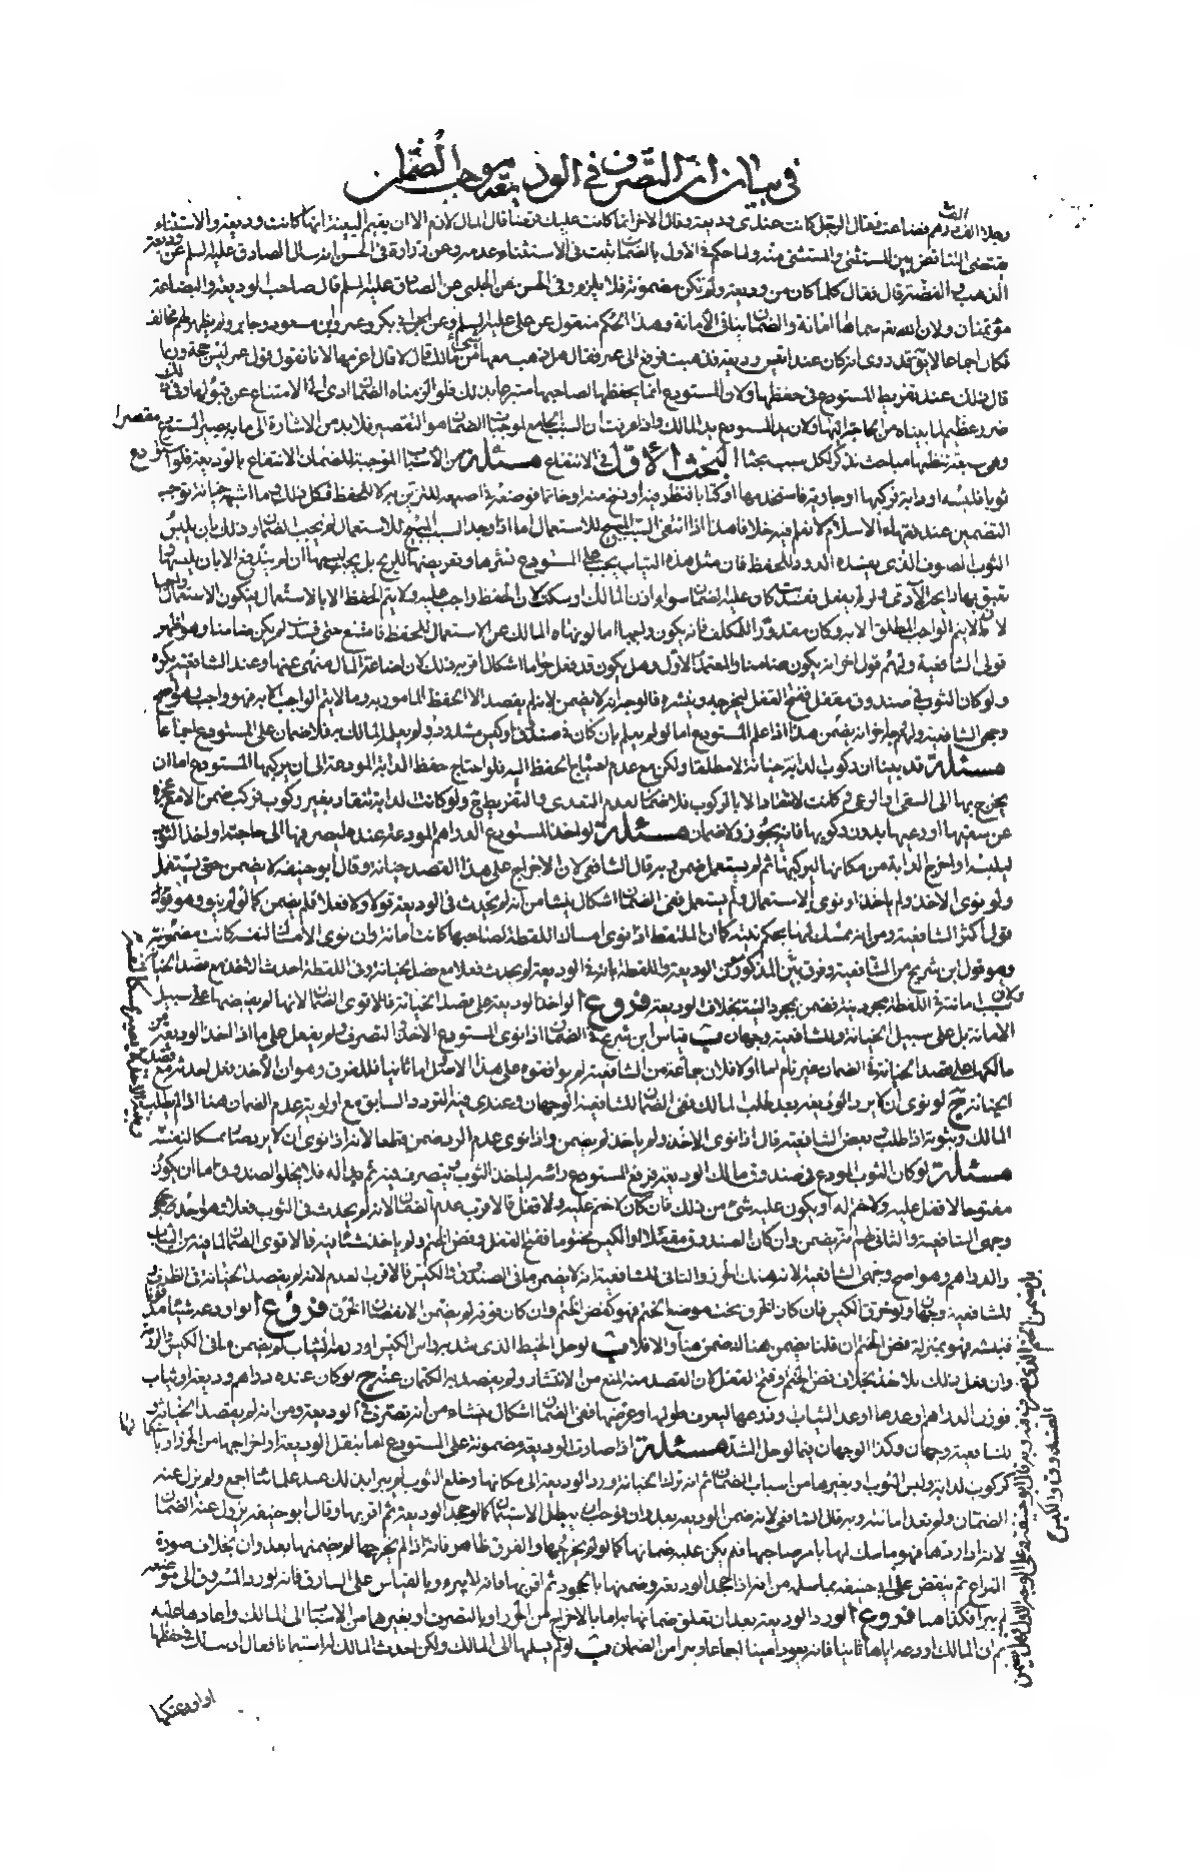 في بيان ان التصرف في الوديعة موجب للضمان
رجلا الف درهم فضاعت فقال الرجل كانت عندي وديعة وقال الاخر انما كانت عليك قرضا قال المال لازم له الا ان يقيم البينة انها كانت وديعة والاستثناء
يقتضي التناقض بين المستثنى والمستثنى منه ولما حكم في الاول بالضمان ثبت في الاستثناء عدمه وعن زرارة في الحسن انه سال الصادق عليه السلم عن وديعة
الذهب والفضة قال فقال كلما كان من وديعة ولم تكن مضمونة فلا يلزم وفي الحسن عن الحلبي عن الصادق عليه السلم قال صاحب الوديعة والبضاعة
مؤتمنان ولان الله تعالى سماها امانة والضمان ينافي الامانة وهذا الحكم منقول عن علي عليه السلم وعن ابي بكر وعمر وابن مسعود وجابر ولم يظهر لهم مخالف
فكان اجماعا لا يق قد روي انه كان عند انس وديعة فذهبت فرفع الى عمر فقال هل ذهب معها شئ من مالك قال لا قال اغرمها لانا نقول قول عمر ليس حجة وربما
قال ذلك عند تفريط المستودع في حفظها ولان المستودع انما يحفظها لصاحبها متبرعا بذلك فلو الزمناه الضمان ادى الى الامتناع عن قبولها وفي ذلك
ضرر عظيم لما بيناه من الحاجة اليها ولان يد المستودع يد المالك واذا عرفت ان السبب الجامع لموجبات الضمان هو التقصير فلا بد من الاشارة الى ما به يصير المستودع مقصرا
وهي سبعة تنظمها مباحث نذكر لكل سبب بحثا البحث الاول في الانتفاع مسئلة من الاسباب الموجبة للضمان الانتفاع بالوديعة فلو استودع
ثوبا فلبسه او دابة فركبها او جارية فاستخدمها او كتابا فنظر فيه او نسخ منه او خاتما فوضعه في اصبعه للتزين به لا للحفظ فكل ذلك وما اشبهه خيانة توجب
التضمين عند فقهاء الاسلام لا نعلم فيه خلافا هذا اذا انتفى السبب المبيح للاستعمال اما اذا وجد السبب المبيح للاستعمال لم يجب الضمان وذلك بان يلبس
الثوب الصوف الذي يفسده الدود للحفظ فان مثل هذه الثياب يجب على المستودع نشرها وتعريضها للريح بل يجب لبسها ان لم يندفع الا بان يلبسها
تعبق بها رايحة الادمي ولو لم يفعل ففسدت كان عليه الضمان سواء اذن المالك او سكت لان الحفظ واجب عليه ولا يتم الحفظ الا بالاستعمال فيكون الاستعمال واجبا
لان ما لا يتم الواجب المطلق الا به وكان مقدورا للمكلف فانه يكون واجبا اما لو نهاه المالك عن الاستعمال للحفظ فامتنع حتى فسدت لم يكن ضامنا وهو اظهر
قولي الشافعية ولهم قول اخر انه يكون ضامنا والمعتمد الاول وهل يكون قد فعل حراما اشكال اقربه ذلك لان اضاعة المال منهي عنها وعند الشافعية يكره
ولو كان الثوب في صندوق مقفل ففتح القفل ليخرجه وينشره فالوجه انه لا يضمن لانه لم يقصد الا الحفظ المامور به وما لا يتم الواجب الا به فهو واجب وهو اصح
وجهي الشافعية ولهم وجه اخر انه يضمن هذا اذا علم المستودع اما لو لم يعلم بان كان في صندوق او كيس مشدود ولم يعلمه المالك به فلا ضمان على المستودع اجماعا
مسئلة قد بينا ان ركوب الدابة خيانة لا مطلقا ولكن مع عدم احتياج الحفظ اليه فلو احتاج حفظ الدابة المودعة الى ان يركبها المستودع اما ان
يخرج بها الى السقي او الرعي وكانت لا تنقاد الا بالركوب فلا ضمان لعدم التعدي والتفريط ح ولو كانت الدابة تنقاد بغير ركوب فركب ضمن الا مع عجزه
عن سقيها او رعيها بدون ركوبها فانه يجوز ولا ضمان مسئلة لو اخذ المستودع الدراهم المودعة عنده ليصرفها الى حاجته او اخذ الثوب
ليلبسه او اخرج الدابة من مكانها ليركبها ثم لم يستعمل ضمن وبه قال الشافعي لان الاخراج على هذا القصد خيانة وقال ابو حنيفة لا يضمن حتى يستعمل
ولو نوى الاخذ ولم ياخذ او نوى الاستعمال ولم يستعمل ففي الضمان اشكال ينشا من انه لم يحدث في الوديعة قولا ولا فعلا فلم يضمن كما لو لم ينو وهو
قول اكثر الشافعية ومن انه ممسك لها بحكم نيته كما ان الملتقط اذا نوى امساك اللقطة لصاحبها كانت امانة وان نوى الامساك لنفسه كانت مضمونة
وهو قول ابن شريح من الشافعية وفرق بين المذكور من الوديعة واللقطة بانه في الوديعة لم يحدث فعلا مع قصد الخيانة وفي اللقطة احدث الاخذ مع قصد الخيانة
وكان سبب امانته في اللقطة مجرد نيته فضمن بمجرد النية بخلاف الوديعة فروع ا لو اخذ الوديعة على قصد الخيانة فالاقوى الضمان لانها لم يقبضها على سبيل
الامانة بل على سبيل الخيانة وللشافعية وجهان ب قياس ابن شريح في الضمان اذا نوى المستودع الاخذ او التصرف ولم يفعل على ما اذا اخذ الوديعة من
مالكها على قصد الخيانة في الضمان غير تام اما اولا فلان جماعة من الشافعية لم يوافقوه على هذا الاصل واما ثانيا فللفرق وهو ان الاخذ فعل احدثه مع قصد
الخيانة ج لو نوى ان لا يرد الوديعة بعد طلب المالك ففي الضمان للشافعية الوجهان وعندي فيه التردد السابق مع اولوية عدم الضمان هنا اذا لم يطلب
المالك وثبوته اذا طلب وبعض الشافعية قال اذا نوى الاخذ ولم ياخذ لم يضمن واذا نوى عدم الرد ضمن قطعا لانه اذا نوى ان لا يرد صار ممسكا لنفسه
مسئلة لو كان الثوب المودع في صندوق مالك الوديعة فرفع المستودع راسه لياخذ الثوب ويتصرف فيه ثم بدا له فلا يخلو الصندوق اما ان يكون
مفتوحا لا قفل عليه ولا ختم له او يكون عليه شئ من ذلك فان كان لا ختم عليه ولا قفل فالاقرب عدم الضمان لانه لم يحدث في الثوب فعلا وهو احد
وجهي الشافعية والثاني لهم انه يضمن وان كان الصندوق مقفلا او الكيس مختوما ففتح القفل وفض الختم ولم ياخذ شئا منه فالاقوى الضمان لما فيه من الثياب
والدراهم وهو اصح وجهي الشافعية لانه هتك الحرز والثاني للشافعية انه لا يضمن ما في الصندوق والكيس فالاقرب العدم لانه لم يقصد الخيانة في الظرف و
للشافعية وجهان ولو خرق الكيس فان كان الخرق تحت موضع الختم فهو كفض الختم وان كان فوقه لم يضمن الا نقصان الخرق فروع ا لو اودعه شيئا مدفونا
فنبشه فهو بمنزلة فض الختم ان قلنا يضمن هناك ضمن هنا والا فلا ب لو حل الخيط الذي شد به راس الكيس او رزمة الثياب لم يضمن ما في الكيس والرزمة
وان فعل ذلك بلا اخذ بخلاف فض الختم وفتح القفل لان القصد منه المنع من الانتشار ولم يقصد به الكتمان عنه ج لو كان عنده دراهم وديعة او ثياب
فوزن الدراهم او عدها او عد الثياب وذرعها ليعرف طولها وعرضها ففي الضمان اشكال ينشاء من انه تصرف في الوديعة ومن انه لم يقصد الخيانة و
للشافعية وجهان وكذا الوجهان فيما لو حل الشد مسئلة اذا صارت الوديعة مضمونة على المستودع اما بنقل الوديعة او اخراجها من الحرز او با
كركوب الدابة ولبس الثوب او بغيرها من اسباب الضمان ثم انه ترك الخيانة ورد الوديعة الى مكانها وخلع الثوب لم يبرا بذلك عند علمائنا اجمع ولم يزل عنه
الضمان ولم تعد امانته وبه قال الشافعي لانه ضمن الوديعة بعدوان فوجب ان يبطل الاستيمان كما لو جحد الوديعة ثم اقر بها وقال ابو حنيفة يزول عنه الضمان
لانه اذا ردها فهو ماسك لها بامر صاحبها فلم يكن عليه ضمانها كما لو لم يخرجها والفرق ظاهر فانه اذا لم يخرجها لم يضمنها بعدوان بخلاف صورة
النزاع ثم ينتقض على ابي حنيفة بما سلمه من انه اذا جحد الوديعة وضمنها بالجحود ثم اقر بها فانه لا يبرء وبالقياس على السارق فانه لو رد المسروق الى موضعه
لم يبرا فكذا هنا فروع ا لو رد الوديعة بعد ان تعلق ضمانها به اما بالاخراج من الحرز او التصرف او بغيرهما من الاسباب الى المالك واعادها عليه
ثم ان المالك اودعه اياها ثانيا فانه يعود امينا اجماعا ويبرا من الضمان ب لو لم يسلمها الى المالك ولكن احدث المالك له استيمانا فقال اذنت لك في حفظها
او اودعتكها